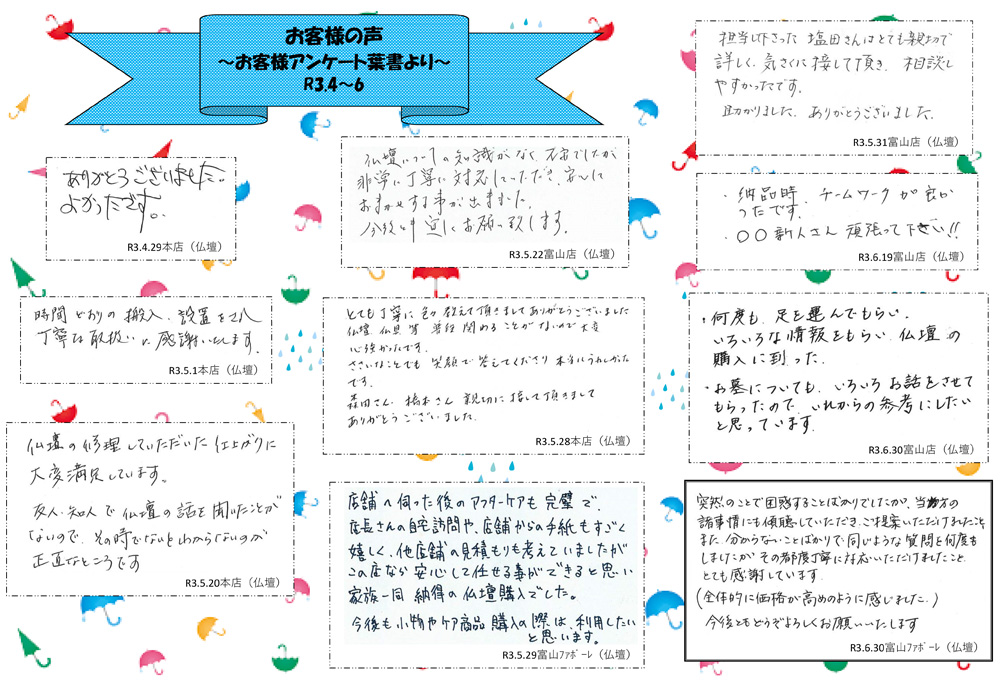 お客様の声
～お客様アンケート葉書より～
R3.4～6
ありがとうございました。
よかったです。
R3.4.29本店（仏壇）
時間どおりの搬入、設置をされ
丁寧な取扱いに感謝いたします。
R3.5.1本店（仏壇）
仏壇の修理していただいた仕上がりに
大変満足しています。
友人・知人で仏壇の話を聞いたことが
ないので、その時でないとわからないのが
正直なところです
R3.5.20本店（仏壇）
仏壇についての知識がなく、不安でしたが
非常に丁寧に対応していただき、安心して
おまかせする事が出来ました。
今後とも宜しくお願い致します。
R3.5.22富山店（仏壇）
とても丁寧に色々教えて頂きましてありがとうございました
仏壇 仏具等 普段関わることがないので大変
心強かったです。
ささいなことでも笑顔で答えてくださり本当にうれしかった
です。
森田さん、橋本さん 親切に接して頂きまして
ありがとうございました。
R3.5.28本店（仏壇）
店舗へ伺った後のアフターケアも完璧で、
店長さんの自宅訪問や、店舗からの手紙もすごく
嬉しく、他店舗の見積もりも考えていましたが
この店なら安心して任せる事ができると思い
家族一同 納得の仏壇購入でした。
今後も小物やケア商品購入の際は、利用したい
と思います。
R3.5.29富山ﾌｧﾎﾞｰﾚ（仏壇）
担当下さった塩田さんはとても親切で
詳しく、気さくに接して頂き、相談し
やすかったです。
助かりました。ありがとうございました。
R3.5.31富山店（仏壇）
・納品時、チームワークが良か
ったです。
・〇〇新人さん 頑張って下さい!!
R3.6.19富山店（仏壇）
・何度も、足を運んでもらい、
いろいろな情報をもらい仏壇の
購入に到った。
・お墓についても、いろいろお話をさせて
もらったので、これからの参考にしたい
と思っています。
R3.6.30富山店（仏壇）
突然のことで困惑することばかりでしたが、当方の
諸事情にも傾聴していただき、ご提案いただけましたこと
また、分からないことばかりで同じような質問を何度も
しましたが その都度丁寧に対応いただけましたこと、
とても感謝しています。
（全体的に価格が高めのように感じました。）
今後ともどうぞよろしくお願いいたします
R3.6.30富山ﾌｧﾎﾞｰﾚ（仏壇）